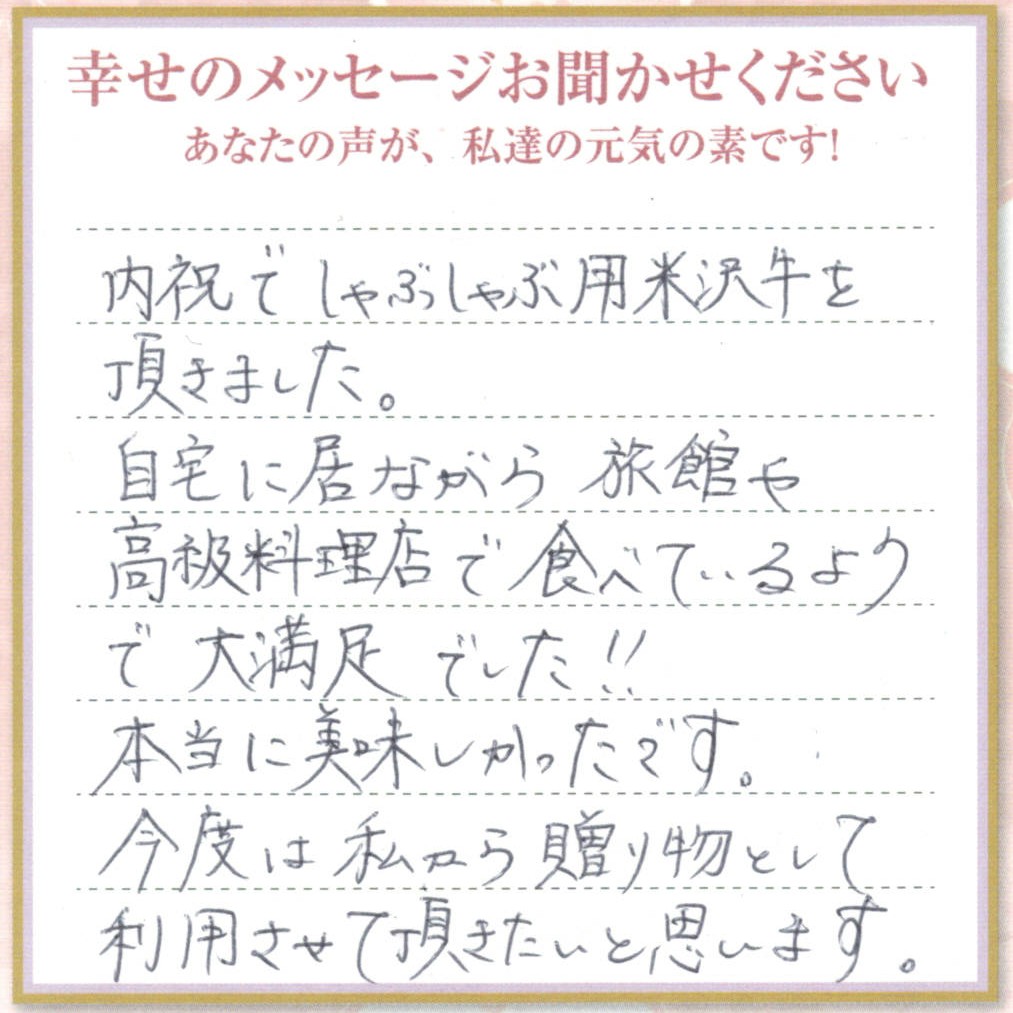 幸せのメッセージお聞かせください
あなたの声が、私達の元気の素です!
内祝でしゃぶしゃぶ用米沢牛を
頂きました。
自宅に居ながら 旅館や
高級料理店で食べているより
で 大満足 でした!!
本当に美味しかったです。
今度は私から贈り物として
利用させて頂きたいと思います。